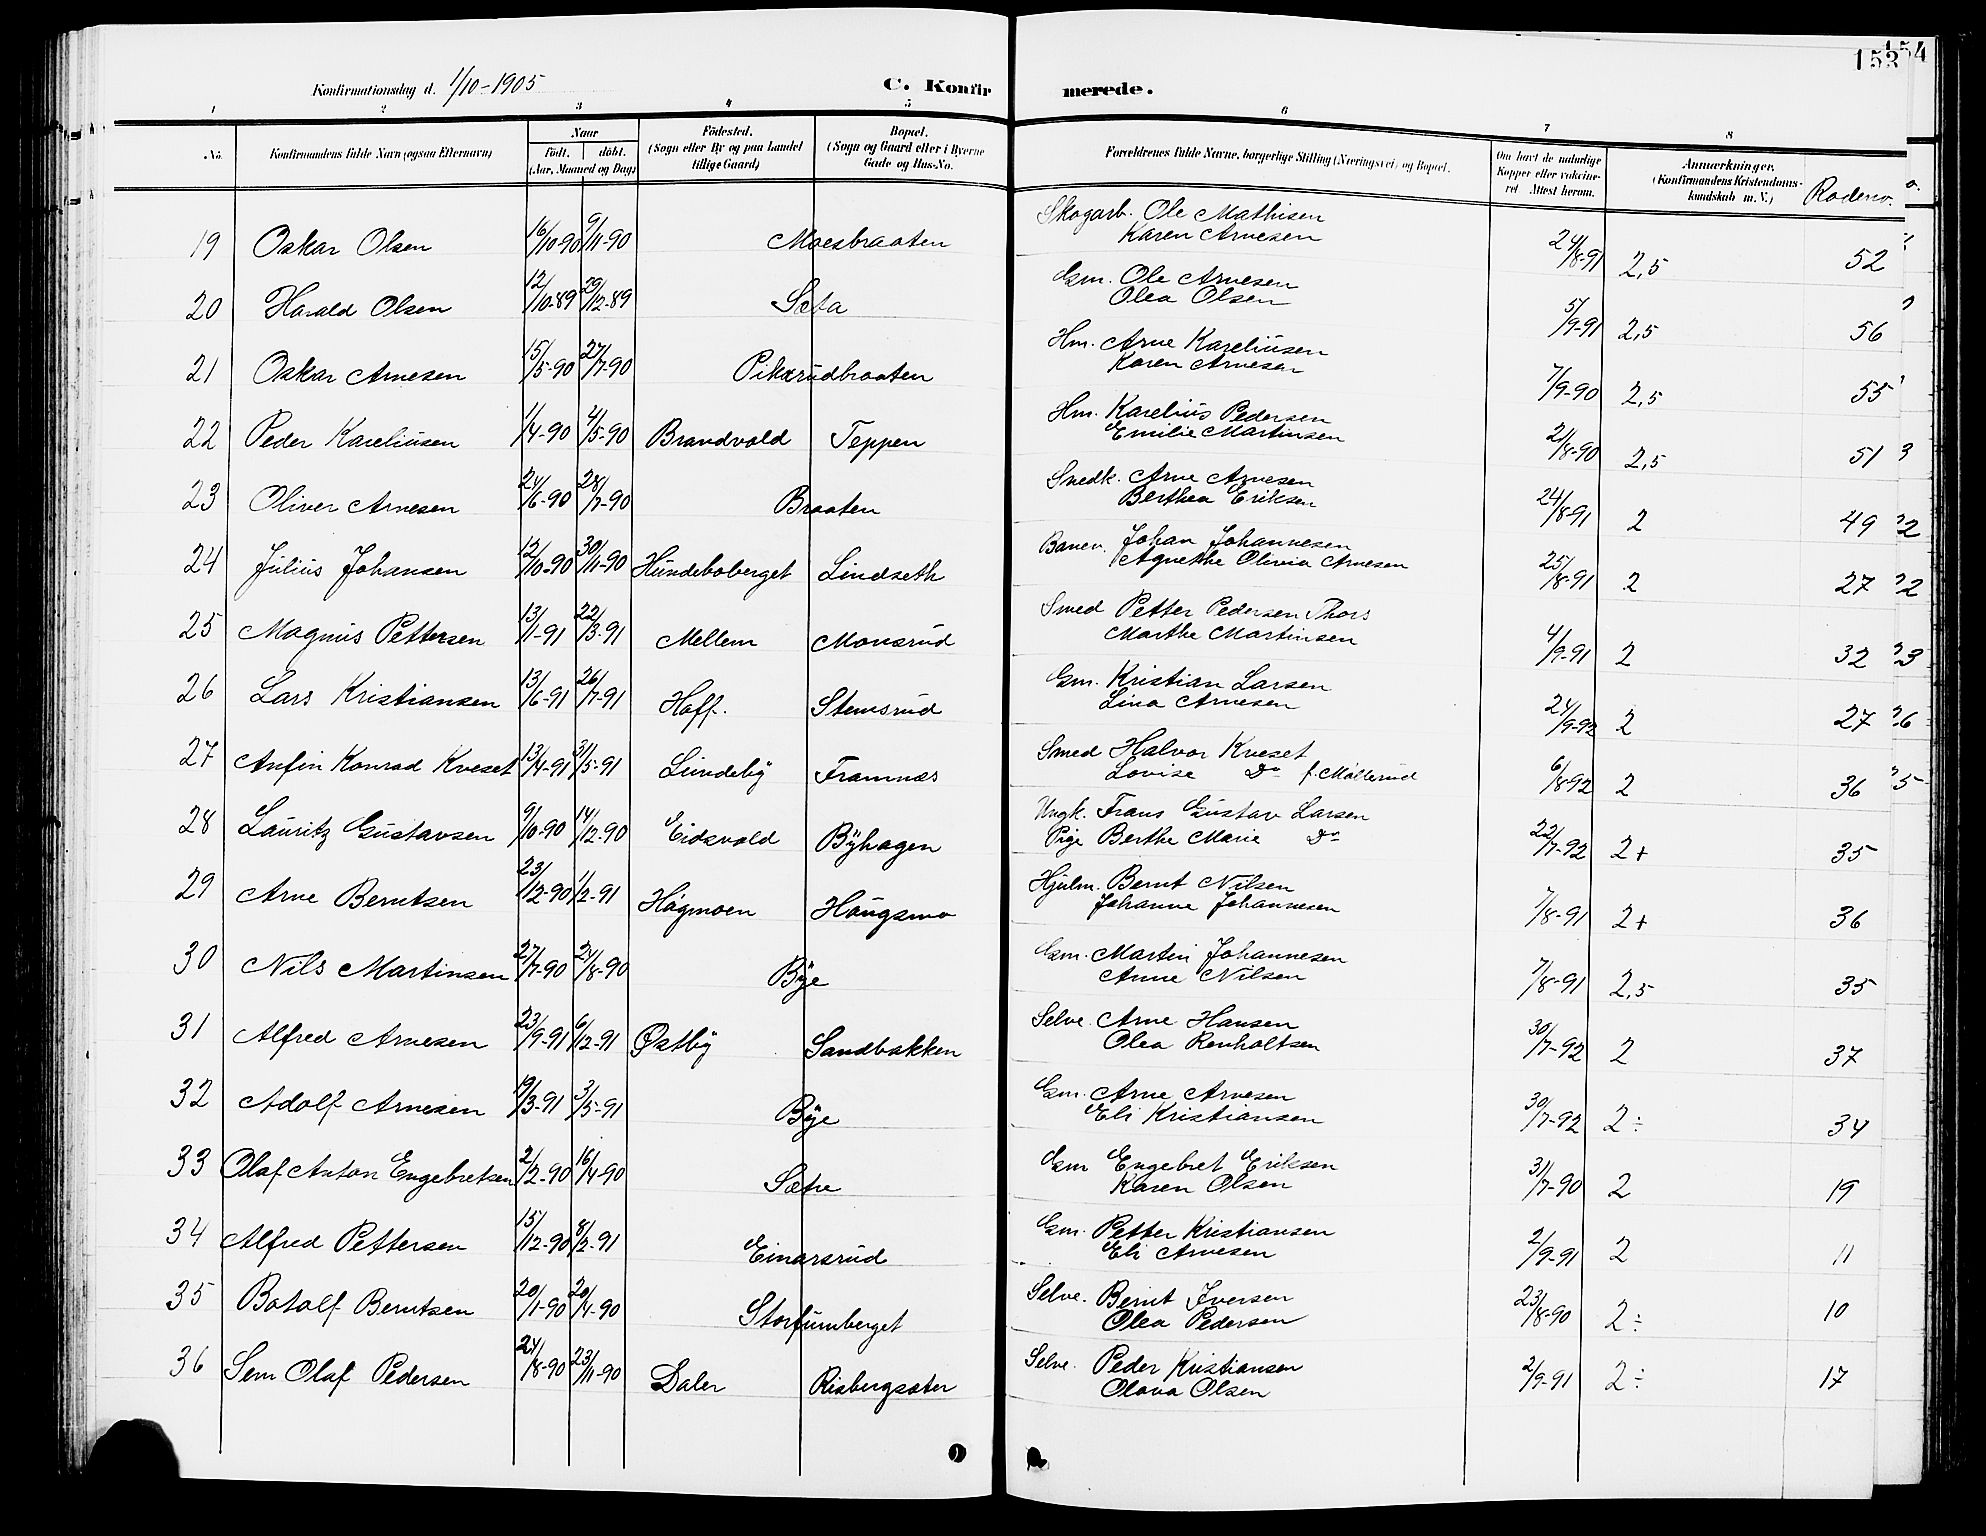 153
154
Konfirmationsdag d. 1/10-1905
C. Konfirmerede.
1 2 3 4 5 6 7 8
No. Konfirmandens fulde Navn (ogsaa Efternavn) Naar födt. döbt. (Aar, Maaned og Dag) Födested. (Sogn eller By og paa Landet tillige Gaard) Bopæl. (Sogn og Gaard eller i Byerne Gade og Hus-No. Forældrenes fulde Navne, borgerlige Stilling (Næringsvei) og Bopæl. Om havt de naturlige Kopper eller vakcineret Attest herom. Anmærkninger. (Konfirmandens Kristendomskundskab m. V.) Rodeno.
19 Oskar Olsen 16/10-90 9/11-90 Moesbraaten Skogarb. Ole Mathisen
Karen Arnesen 24/8-91 2,5 52
20 Harald Olsen 12/10-89 29/12-89 Sæta Gm. Ole Arnesen
Olea Olsen 5/9-91 2,5 56
21 Oskar Arnesen 15/5-90 27/7-90 Pikerudbraaten Hm. Arne Kareliusen
Karen Arnesen 7/9-90 2,5 55
22 Peder Kareliusen 1/4-90 4/5-90 Brandvold Teppen Hm. Karelius Pedersen
Emilie Martinsen 21/8-90 2,5 51
23 Oliver Arnesen 24/6-90 28/7-90 Braaten Snedk. Arne Arnesen
Berthea Eriksen 24/8-91 2 49
24 Julius Johansen 12/10-90 30/11-90 Hundeboberget Lindseth Banev. Johan Johannesen
Agnethe Olivia Arnesen 25/8-91 2 27
25 Magnus Pettersen 13/1-91 22/3-91 Mellem Monsrud Smed Petter Pedersen Thors
Marthe Martinsen 4/9-91 2 32
26 Lars Kristiansen 13/6-91 26/7-91 Hoff. Stemsrud Gm. Kristian Larsen
Lina Arnesen 24/9-92 2 27
27 Anfin Konrad Kveset 13/4-91 31/5-91 Lundeby Framnæs Smed Halvor Kveset
Lovise Do f. Møllerud 6/8-92 2 36
28 Lauritz Gustavsen 9/10-90 14/12-90 Eidsvold Byhagen Ungk. Frans Gustav Larsen
Pige Berthe Marie Do 22/7-92 2+ 35
29 Arne Berntsen 23/12-90 1/2-91 Høgmoen Haugsmo Hjulm. Bernt Nilsen
Johanne Johannesen 7/8-91 2+ 36
30 Nils Martinsen 27/7-90 24/8-90 Bye Gm. Martin Johannesen
Anne Nilsen 7/8-91 2,5 35
31 Alfred Arnesen 23/9-91 6/12-91 Østby Sandbakken Selve. Arne Hansen
Olea Renholtsen 30/7-92 2 37
32 Adolf Arnesen 19/3-91 3/5-91 Bye Gm. Arne Arnesen
Eli Kristiansen 30/7-92 2÷ 34
33 Olaf Anton Engebretsen 2/2-90 16/4-90 Sætre Gm Engebret Eriksen
Karen Olsen 31/7-90 2 19
34 Alfred Pettersen 15/12-90 8/2-91 Einarsrud Gm. Petter Kristiansen
Eli Arnesen 2/9-91 2 11
35 Botolf Berntsen 20/1-90 20/4-90 Storfurnberget Selve. Bernt Iversen
Olea Pedersen 23/8-90 2÷ 10
36 Sem Olaf Pedersen 24/8-90 23/11-90 Daler Risbergsæter Selve. Peder Kristiansen
Olava Olsen 2/9-91 2÷ 17